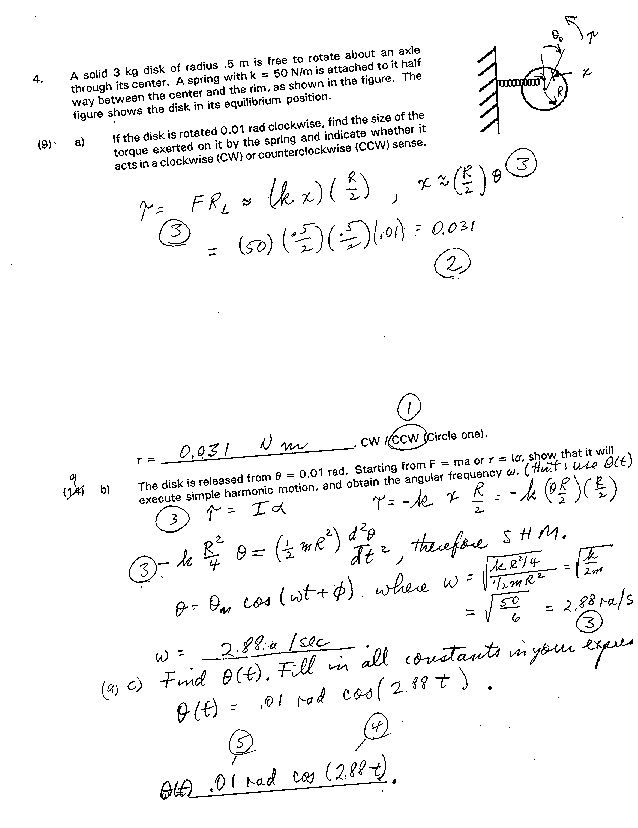 4. A solid 3 kg disk of radius .5 m is free to rotate about an axle
through its center. A spring with k = 50 N/m is attached to it half
way between the center and the rim, as shown in the figure. The
figure shows the disk in its equilibrium position.
θ₀ τ
x
R
(9) a) If the disk is rotated 0.01 rad clockwise, find the size of the
torque exerted on it by the spring and indicate whether it
acts in a clockwise (CW) or counterclockwise (CCW) sense.
τ = F R⊥ ≈ (k x)(R/2) , x ≈ (R/2) θ (3)
(3) = (50)(.5/2)(.5/2)(.01) = 0.031
(2)
(1)
τ = 0.031 N m CW / CCW (Circle one).
9
(14) b) The disk is released from θ = 0.01 rad. Starting from F = ma or τ = Iα, show that it will
execute simple harmonic motion, and obtain the angular frequency ω. (Hint: use θ(t)
(3) τ = I α τ = -k x R/2 = -k (θR/2)(R/2)
(3) - k R²/4 θ = (½ mR²) d²θ/dt² , therefore SHM.
θ = θm cos (ωt + φ). where ω = √(kR²/4 / ½mR²) = √(k/2m)
= √(50/6) = 2.88 ra/s
(3)
ω = 2.88 /sec
(9) c) Find θ(t). Fill in all constants in your expres
θ(t) = .01 rad cos(2.88 t).
(5) (4)
θ(t) .01 rad cos (2.88 t).